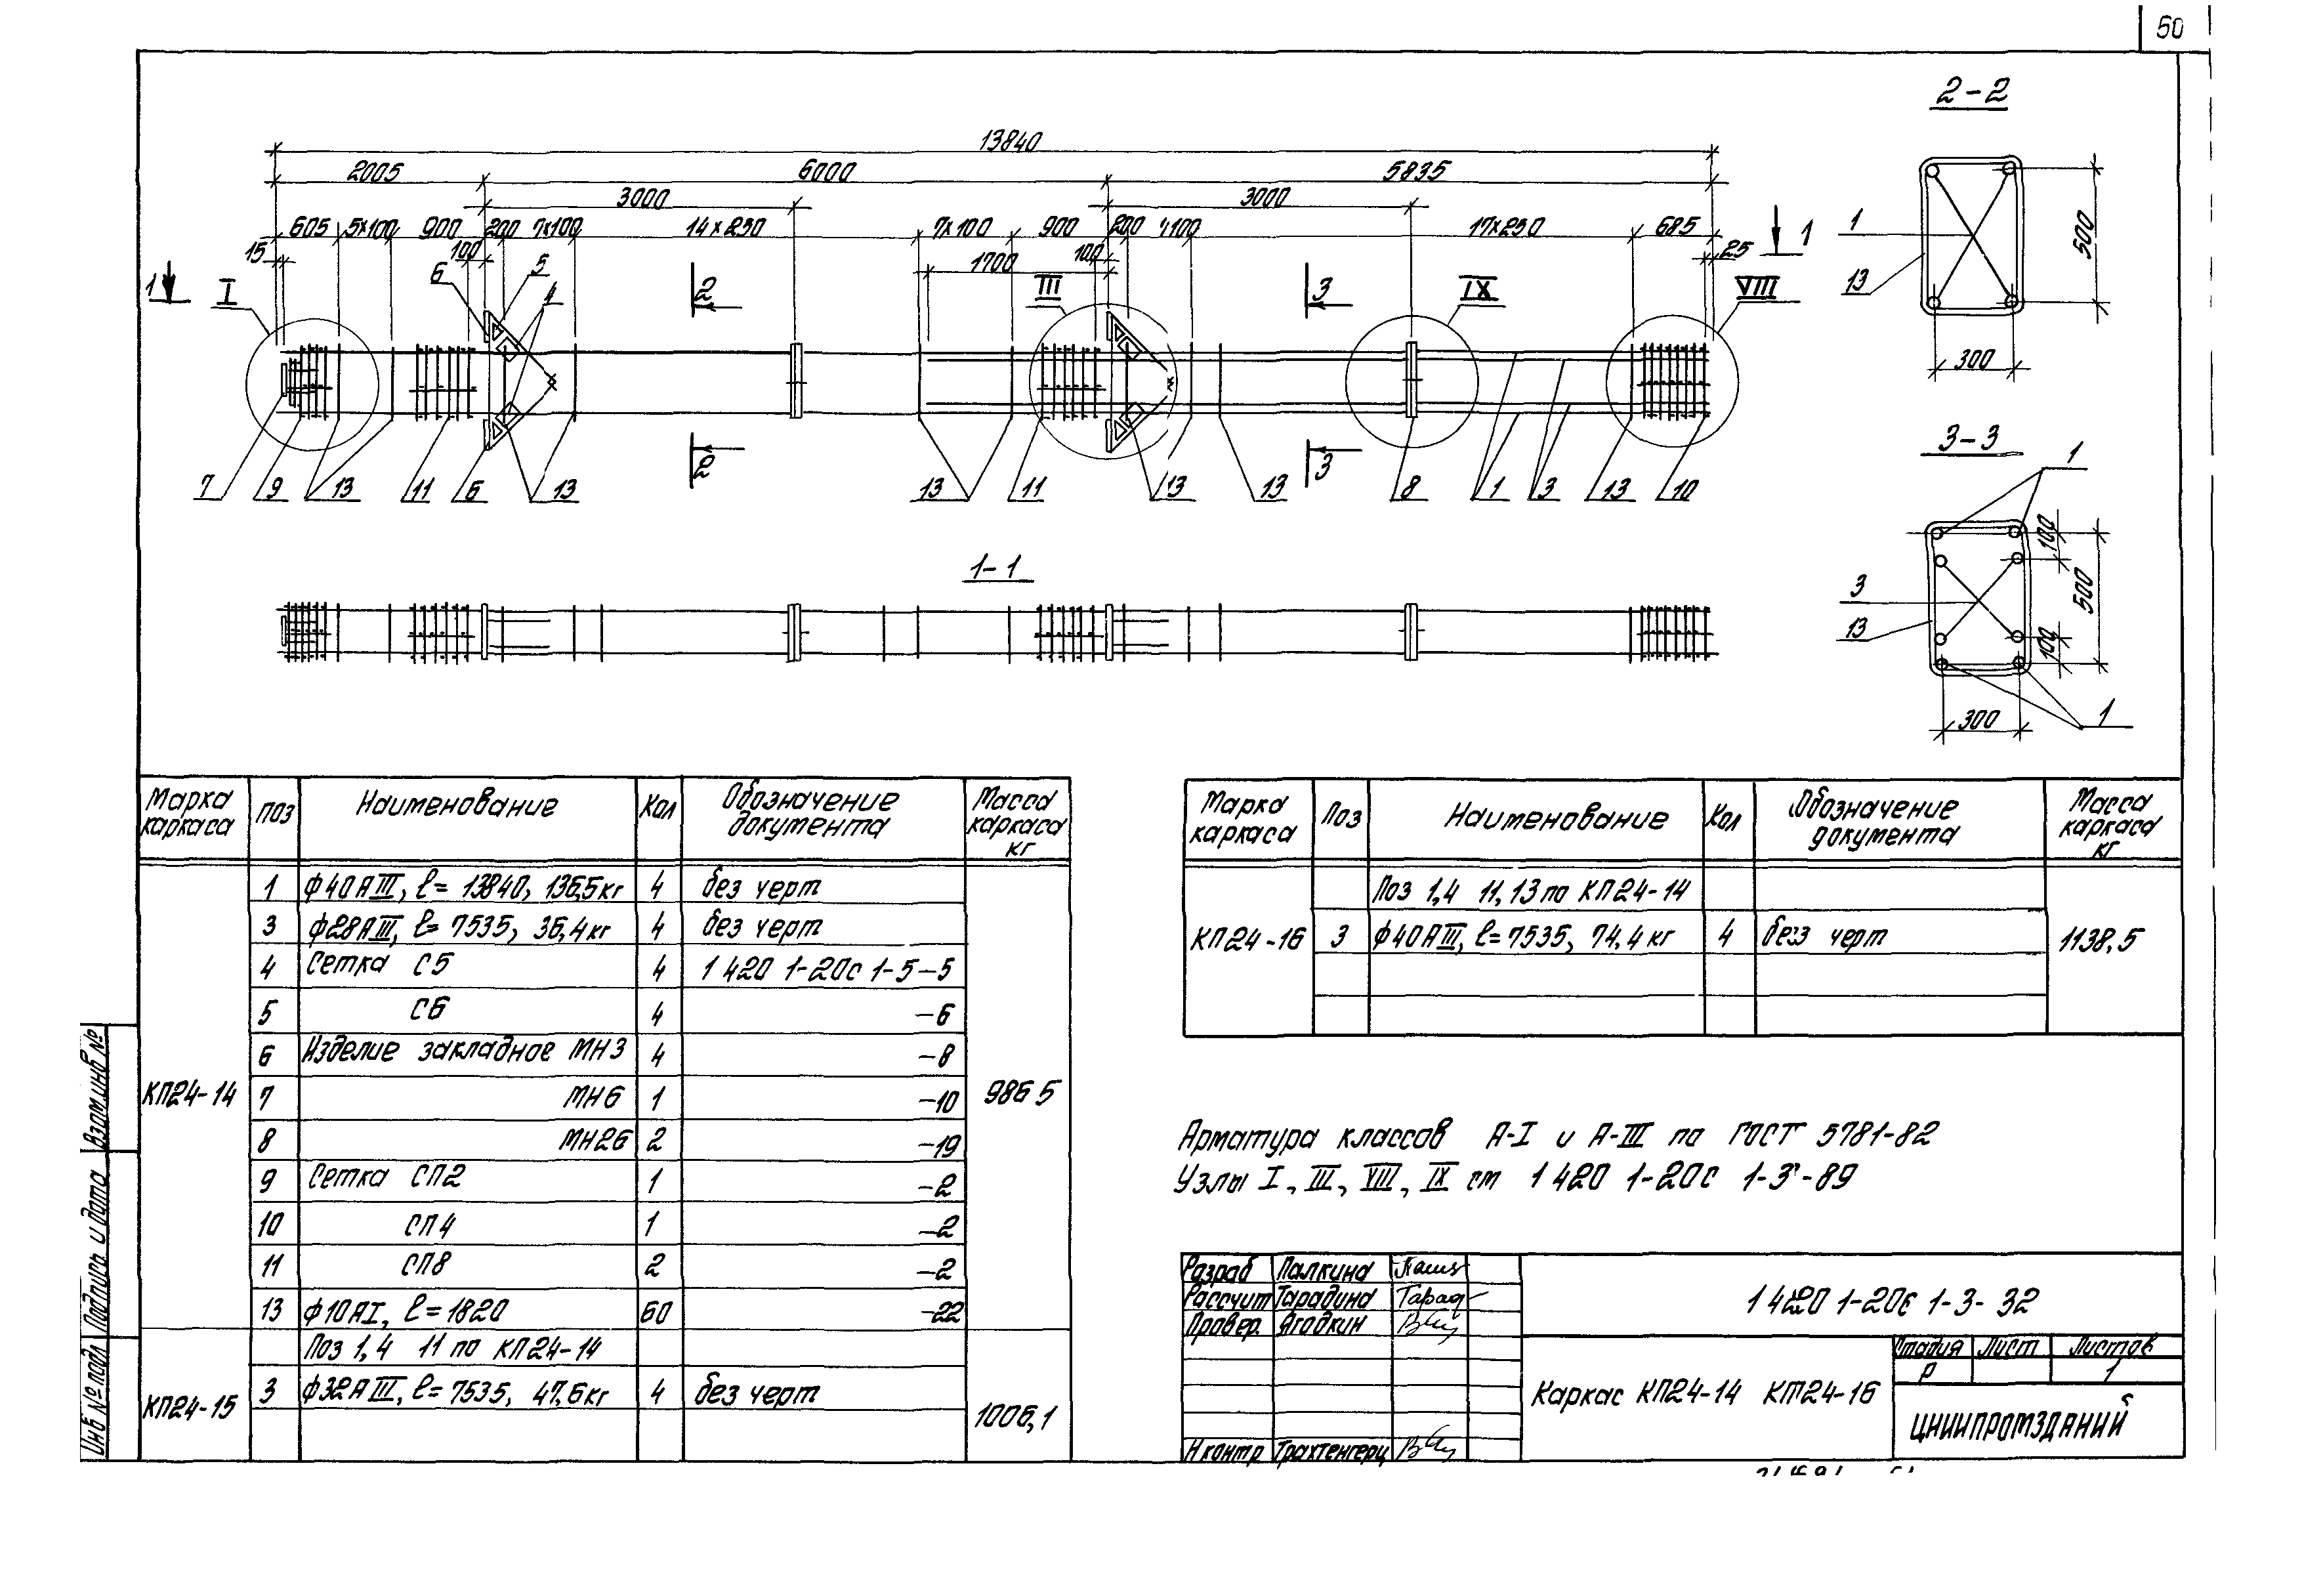 50
2-2
13840
2005 6000 5835
3000 3000
605 5×100 900 200 7×100 14×250 7×100 900 200 17×250 685
15 100 1700 100 25
1 1
I 6 5 4 2 III 3 IX VIII
1
13
500
300
2 3
7 9 13 11 6 13 13 11 13 13 8 1 3 13 10
3-3
1
100
3
500
13
100
300
1
1-1
Марка каркаса Поз Наименование Кол Обозначение документа Масса каркаса кг
КП24-14
1 ф40АIII, ℓ=13840, 136,5кг 4 без черт
3 ф28АIII, ℓ=7535, 36,4кг 4 без черт
4 Сетка С5 4 1 420 1-20с 1-5-5
5 С6 4 -6
6 Изделие закладное МН3 4 -8
7 МН6 1 -10
8 МН26 2 -19
9 Сетка СП2 1 -2
10 СП4 1 -2
11 СП8 2 -2
13 ф10АI, ℓ=1820 60 -22
986 5
КП24-15
Поз 1,4 11 по КП24-14
3 ф32АIII, ℓ=7535, 47,6кг 4 без черт
1006,1
Марка каркаса Поз Наименование Кол Обозначение документа Масса каркаса кг
КП24-16
Поз 1,4 11,13 по КП24-14
3 ф40АIII, ℓ=7535, 74,4кг 4 без черт
1138,5
Арматура классов А-I и А-III по ГОСТ 5781-82
Узлы I, III, VIII, IX см 1 420 1-20с 1-3-89
Разраб Палкина
Рассчит Тарадина
Провер. Ягодкин
Н контр Трахтенгерц
1 420 1-20с 1-3-32
Каркас КП24-14 КП24-16
Стадия Лист Листов
Р 1
ЦНИИПРОМЗДАНИЙ
Взам.инв №
Подпись и дата
Инв № подл